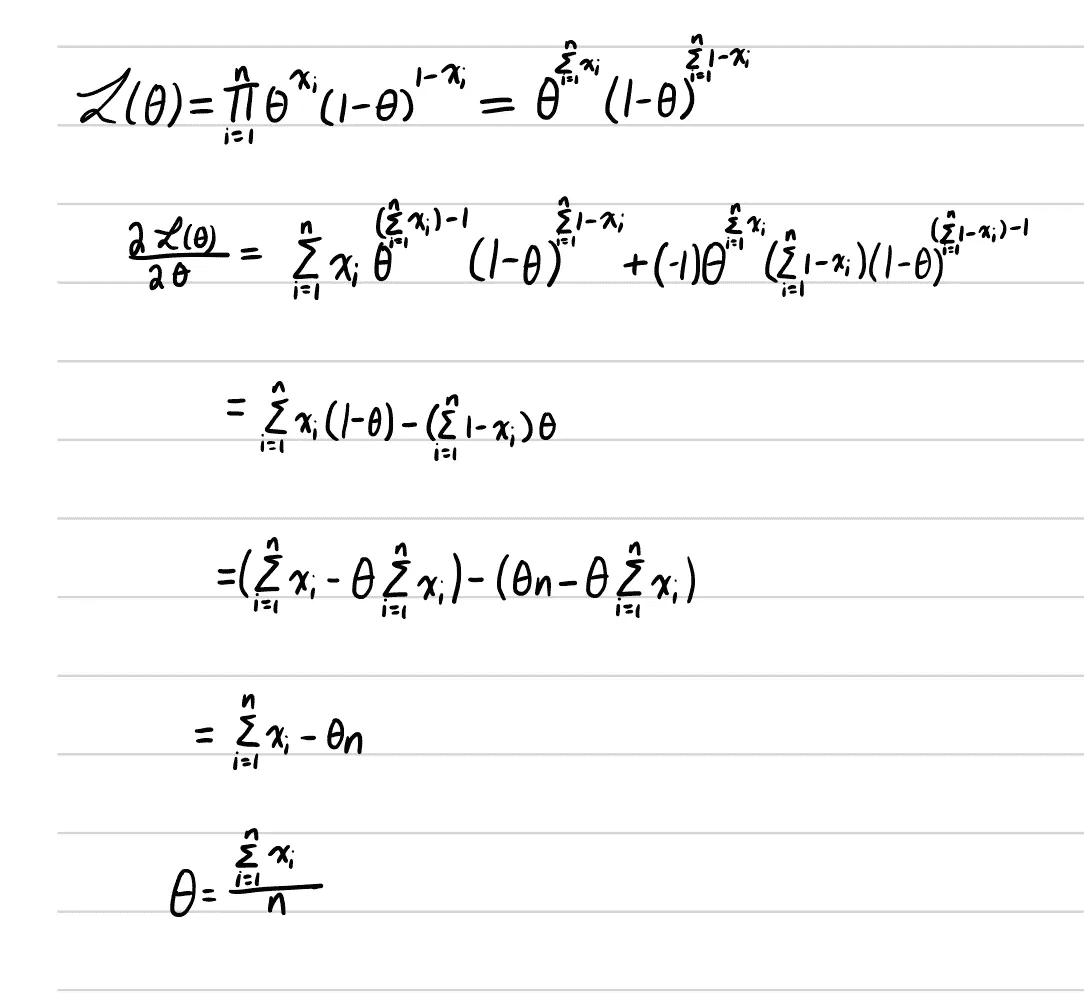 ℒ(θ) = ∏_{i=1}^{n} θ^{x_i} (1-θ)^{1-x_i} = θ^{∑_{i=1}^{n} x_i} (1-θ)^{∑_{i=1}^{n} 1-x_i}
∂ℒ(θ)/∂θ = ∑_{i=1}^{n} x_i θ^{(∑_{i=1}^{n} x_i)-1} (1-θ)^{∑_{i=1}^{n} 1-x_i} + (-1)θ^{∑_{i=1}^{n} x_i} (∑_{i=1}^{n} 1-x_i)(1-θ)^{(∑_{i=1}^{n} 1-x_i)-1}
= ∑_{i=1}^{n} x_i (1-θ) - (∑_{i=1}^{n} 1-x_i)θ
= (∑_{i=1}^{n} x_i - θ ∑_{i=1}^{n} x_i) - (θn - θ ∑_{i=1}^{n} x_i)
= ∑_{i=1}^{n} x_i - θn
θ = ∑_{i=1}^{n} x_i / n